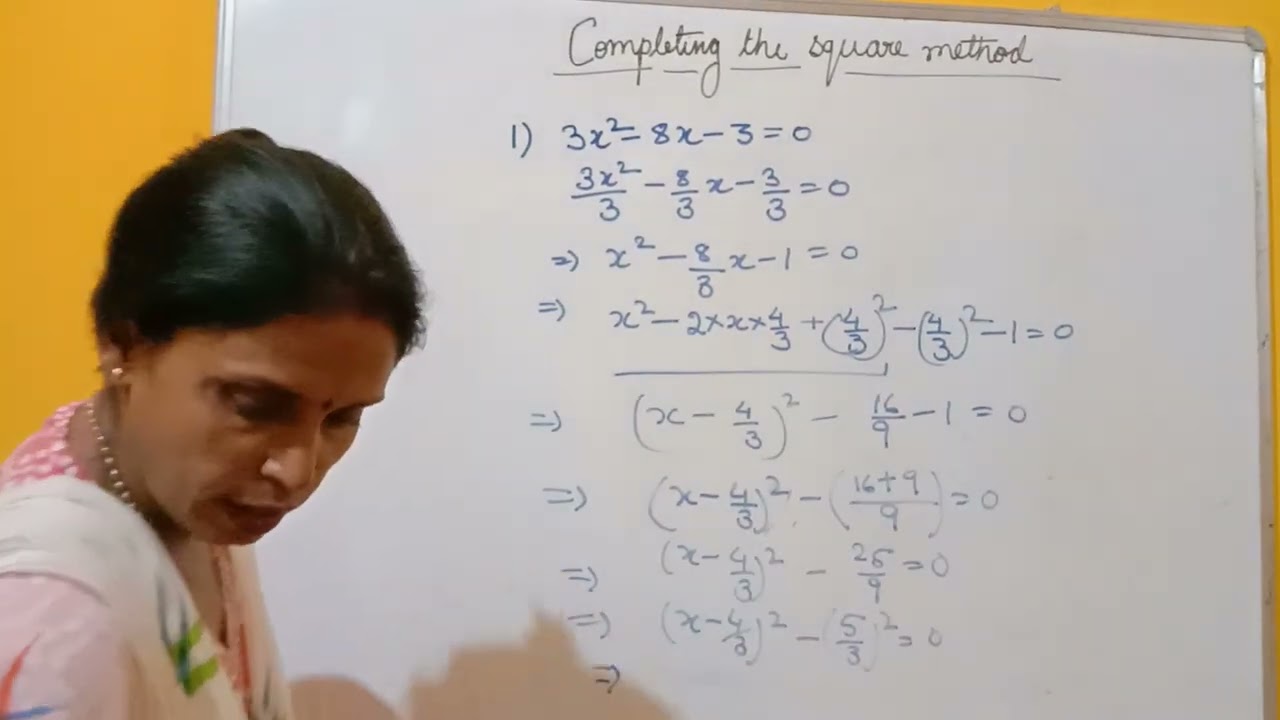 Completing the square method
1) 3x² - 8x - 3 = 0
3x²/3 - 8/3 x - 3/3 = 0
⇒ x² - 8/3 x - 1 = 0
⇒ x² - 2 × x × 4/3 + (4/3)² - (4/3)² - 1 = 0
⇒ (x - 4/3)² - 16/9 - 1 = 0
⇒ (x - 4/3)² - (16+9/9) = 0
⇒ (x - 4/3)² - 25/9 = 0
⇒ (x - 4/3)² - (5/3)² = 0
⇒